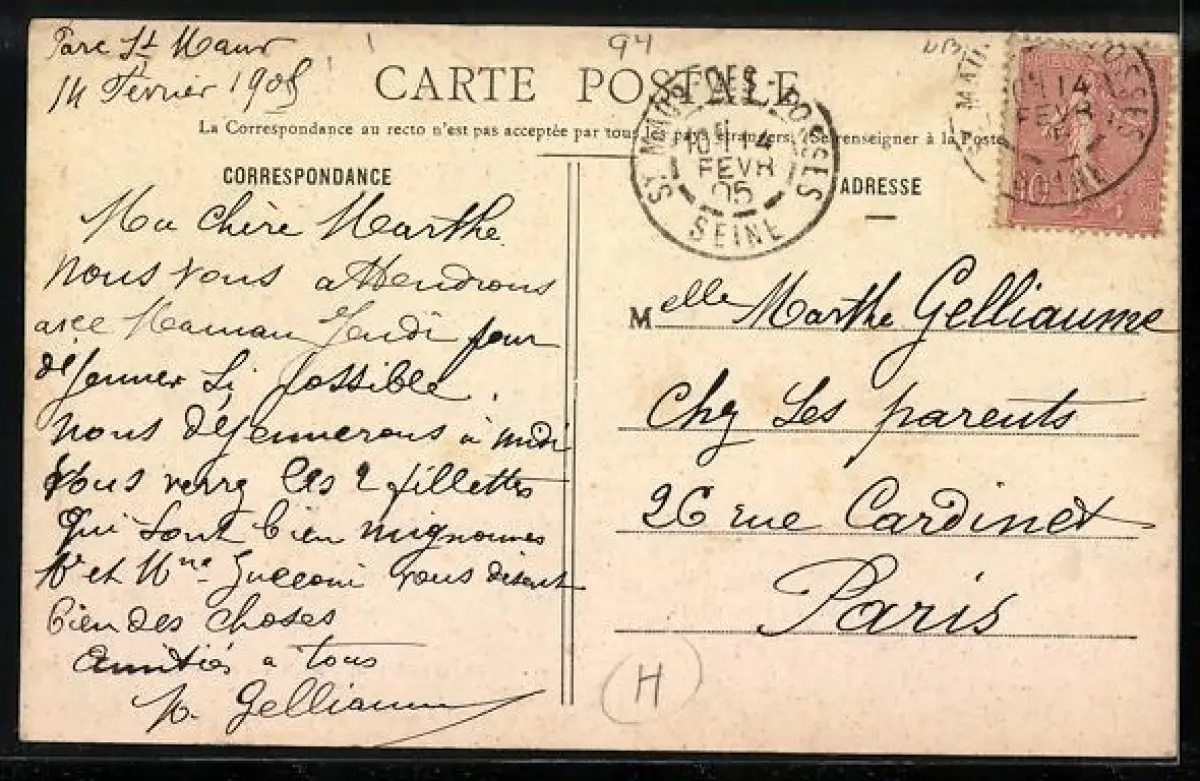 Parc St Maur
14 Février 1905
94
CARTE POSTALE
La Correspondance au recto n'est pas acceptée par tous les pays étrangers. (Se renseigner à la Poste
CORRESPONDANCE
Ma chère Marthe
nous vous attendrons
avec Maman Jeudi pour
déjeuner si possible.
nous déjeunerons à midi
vous verrez les 2 fillettes
qui sont bien mignonnes
Mr et Mme vous disent
bien des choses
amitiés a tous
Gelliaume
ST MAUR-DES-FOSSÉS
SEINE
14
FEVR
05
ADRESSE
Melle Marthe Gelliaume
Chez Ses parents
26 rue Cardinet
Paris
H
14
FEVR
SEINE
10